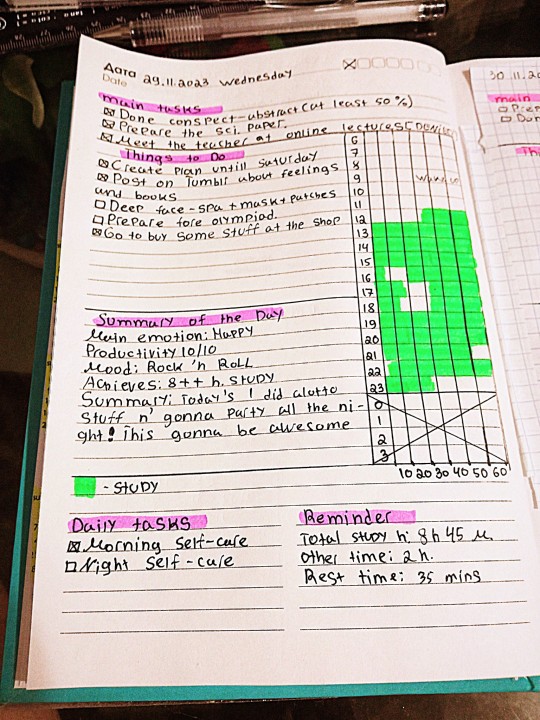 Дата 29.11.2023 Wednesday
Date
main tasks
Done conspect-abstract (at least 50%)
Prepare the sci. paper.
Meet the teacher at online lectures
Things to Do
Create plan untill saturday
Post on Tumblr about feelings
and books
Deep face-spa + mask + patches
Prepare fore olympiad.
Go to buy some stuff at the shop
6
7
8
9
10
11
12
13
14
15
16
17
18
19
20
21
22
23
0
1
2
3
10 20 30 40 50 60
Summary of the Day
Main emotion: Happy
Productivity 10/10
Mood: Rock 'n Roll
Achieves: 8++ h. study
Summary: Today's I did alotto
stuff n' gonna party all the ni-
ght! This gonna be awesome
- study
Daily tasks
Morning self-care
Night self-care
Reminder
Total study h: 8h 45 м.
Other time: 2 h.
Rest time: 35 mins
30.11.20
main